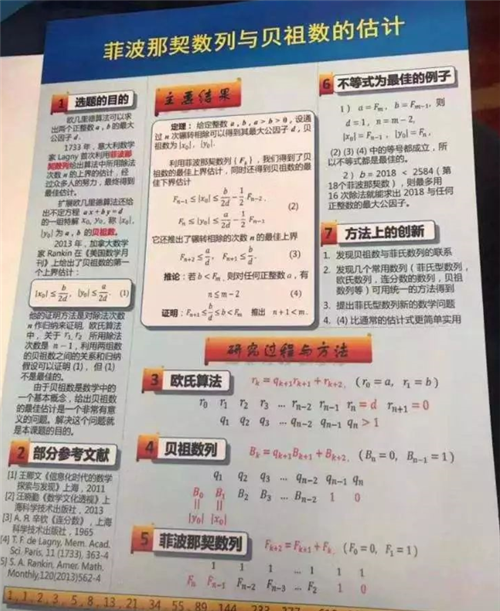 菲波那契数列与贝祖数的估计
1 选题的目的
欧几里德算法可以求
出两个正整数 a, b 的最大
公因子 d 。
1733 年，意大利数学
家 Lagny 首次利用菲波那
契数列给出算法中所用除法
次数 n 的上界的估计，经
过众多人的努力，最终得到
最佳估计。
扩展欧几里德算法还给
出不定方程 ax+by=d
的一组特解 x₀, y₀，称 |x₀|,
|y₀| 为 a, b 的贝祖数。
2013 年，加拿大数学
家 Rankin 在《美国数学月
刊》上给出了贝祖数的第一
个上界估计：
|x₀| ≤ b/2d, |y₀| ≤ a/2d (1)
他的证明方法是对除法次数
n 作归纳来证明. 欧氏算法
中，关于 r₁, r₂ 所用除法
次数是 n − 1，利用两组数
的贝祖数之间的关系和归纳
假设可以证明 (1)，但 (1)
不是最佳的。
由于贝祖数是数学中的
一个基本概念，给出贝祖数
的最佳估计是一个非常有意
义的问题。解决这个问题就
是本课题的目的。
2 部分参考文献
[1] 王卿文《信息化时代的数学
探索与发现》上海，2011
[2] 汪晓勤《数学文化透视》上
海科学技术出版社，2013
[3] А. Я. 辛钦《连分数》，上海
科学技术出版社，1965
[4] T. F. de Lagny, Mem. Acad.
Sci. Paris, 11 (1733), 363-4
[5] S. A. Rankin, Amer. Math.
Monthly,120(2013)562-4
主要结果
定理：给定整数 a, b, a > b > 0, 设通
过 n 次辗转相除可以得到其最大公因子 d，贝
祖数为 |x₀|, |y₀|.
利用菲波那契数列 {Fₙ}，我们得到了贝
祖数的最佳上界估计，同时还得到贝祖数的最
佳下界估计
Fₙ₋₁ ≤ |x₀| ≤ b/2d − 1/2 Fₙ₋₂,
(2)
Fₙ ≤ |y₀| ≤ a/2d − 1/2 Fₙ₋₁.
它还推出了辗转相除的次数 n 的最佳上界
Fₙ₊₂ ≤ a/d, Fₙ₊₁ ≤ b/d. (3)
推论：若 b < Fₘ, 则对任何正整数 a，有
n ≤ m − 2 (4)
证明：Fₙ₊₁ ≤ b/d ≤ b < Fₘ 推出 n + 1 < m.
研究过程与方法
3 欧氏算法 rₖ = qₖ₊₁rₖ₊₁ + rₖ₊₂, (r₀ = a, r₁ = b)
r₀ r₁ r₂ r₃ … rₙ₋₂ rₙ₋₁ rₙ = d rₙ₊₁ = 0
q₁ q₂ q₃ … qₙ₋₂ qₙ₋₁ qₙ > 1
4 贝祖数列 Bₖ = qₖ₊₁Bₖ₊₁ + Bₖ₊₂, (Bₙ = 0, Bₙ₋₁ = 1)
q₁ q₂ q₃ … qₙ₋₂ qₙ₋₁ qₙ
B₀ B₁ B₂ B₃ … Bₙ₋₂ 1 0
|| ||
|y₀| |x₀|
5 菲波那契数列 Fₖ₊₂ = Fₖ₊₁ + Fₖ, (F₀ = 0, F₁ = 1)
1 1 1 … 1 1 1
Fₙ Fₙ₋₁ Fₙ₋₂ Fₙ₋₃ … F₂ 1 0
6 不等式为最佳的例子
1） a = Fₘ, b = Fₘ₋₁, 则
d = 1, n = m − 2,
|x₀| = Fₙ₋₁, |y₀| = Fₙ.
(2) (3) (4) 中的等号都成立，所
以不等式都是最佳的。
2）b = 2018 < 2584 (第
18个菲波那契数)，则最多用
16 次除法就能求出 2018 与任何
正整数的最大公因子。
7 方法上的创新
1. 发现贝祖数与菲氏数列的联系
2. 发现几个常用数列（菲氏型数列，
欧氏数列，连分数的数列，贝祖
数列等）可用统一的方法得到
3. 提出菲氏型数列新的数学问题
4. (4) 比通常的估计式更简单实用
1, 1, 2, 3, 5, 8, 13, 21, 34, 55, 89, 144, 233, 377